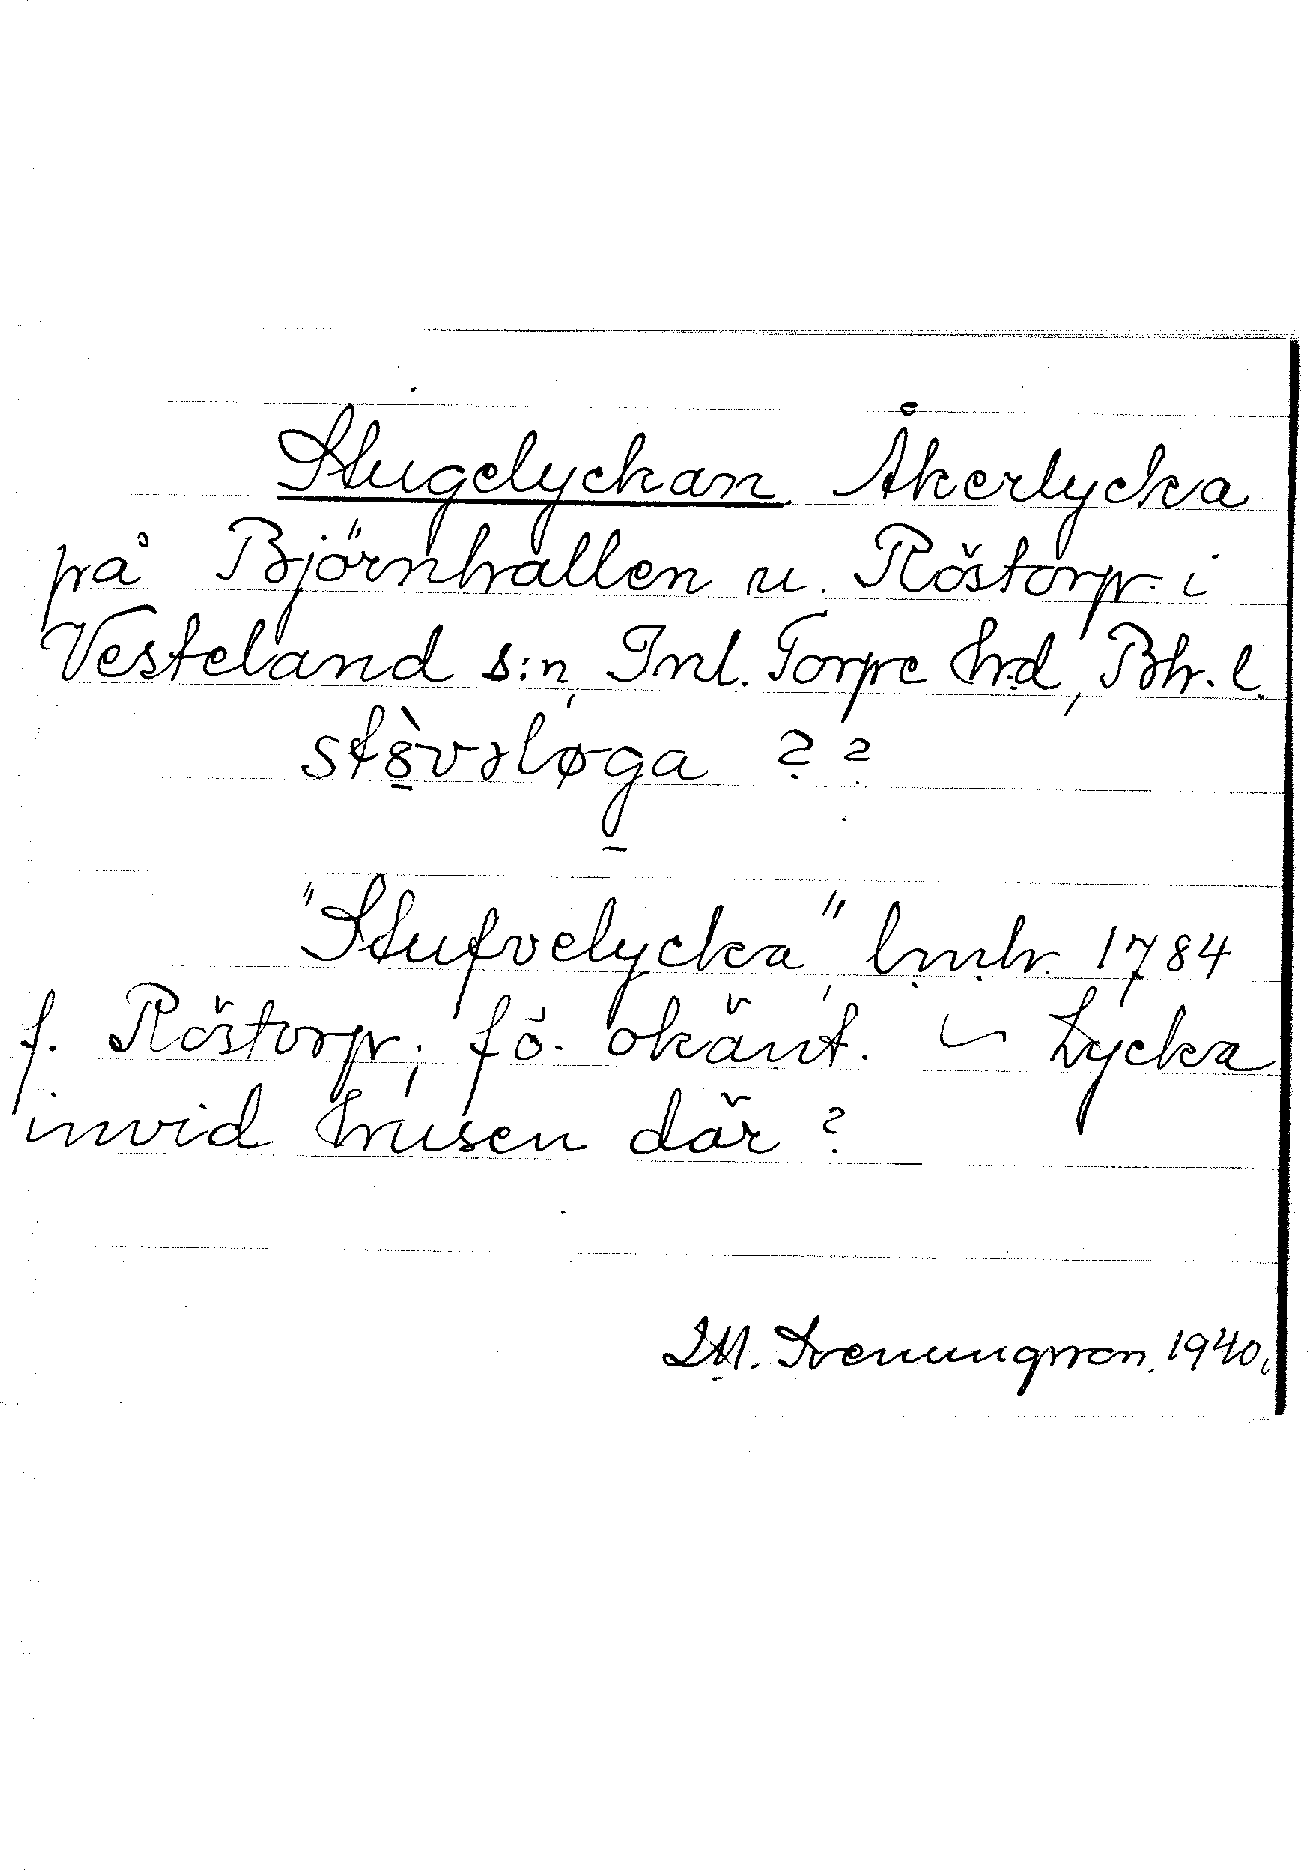 Stugelyckan Åkerlycka
på Björnhallen u. Röstorp i
Vesteland s:n, Inl. Torpe hrd, Bh. l.
st8̀vəløga ? ?
"Stufvelycka", lmh. 1784
f. Röstorp; fö. okänt. – Lycka
invid husen där?
J.M. Svenungsson 1940.